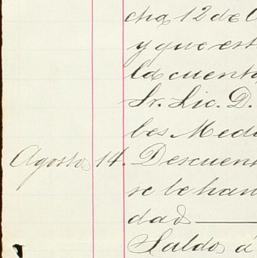 cha 12 de O
y que est
la cuenta
Sr. Lic. D.
bes Medi
Agosto 14. Descuen
se le han
dad
Saldo á